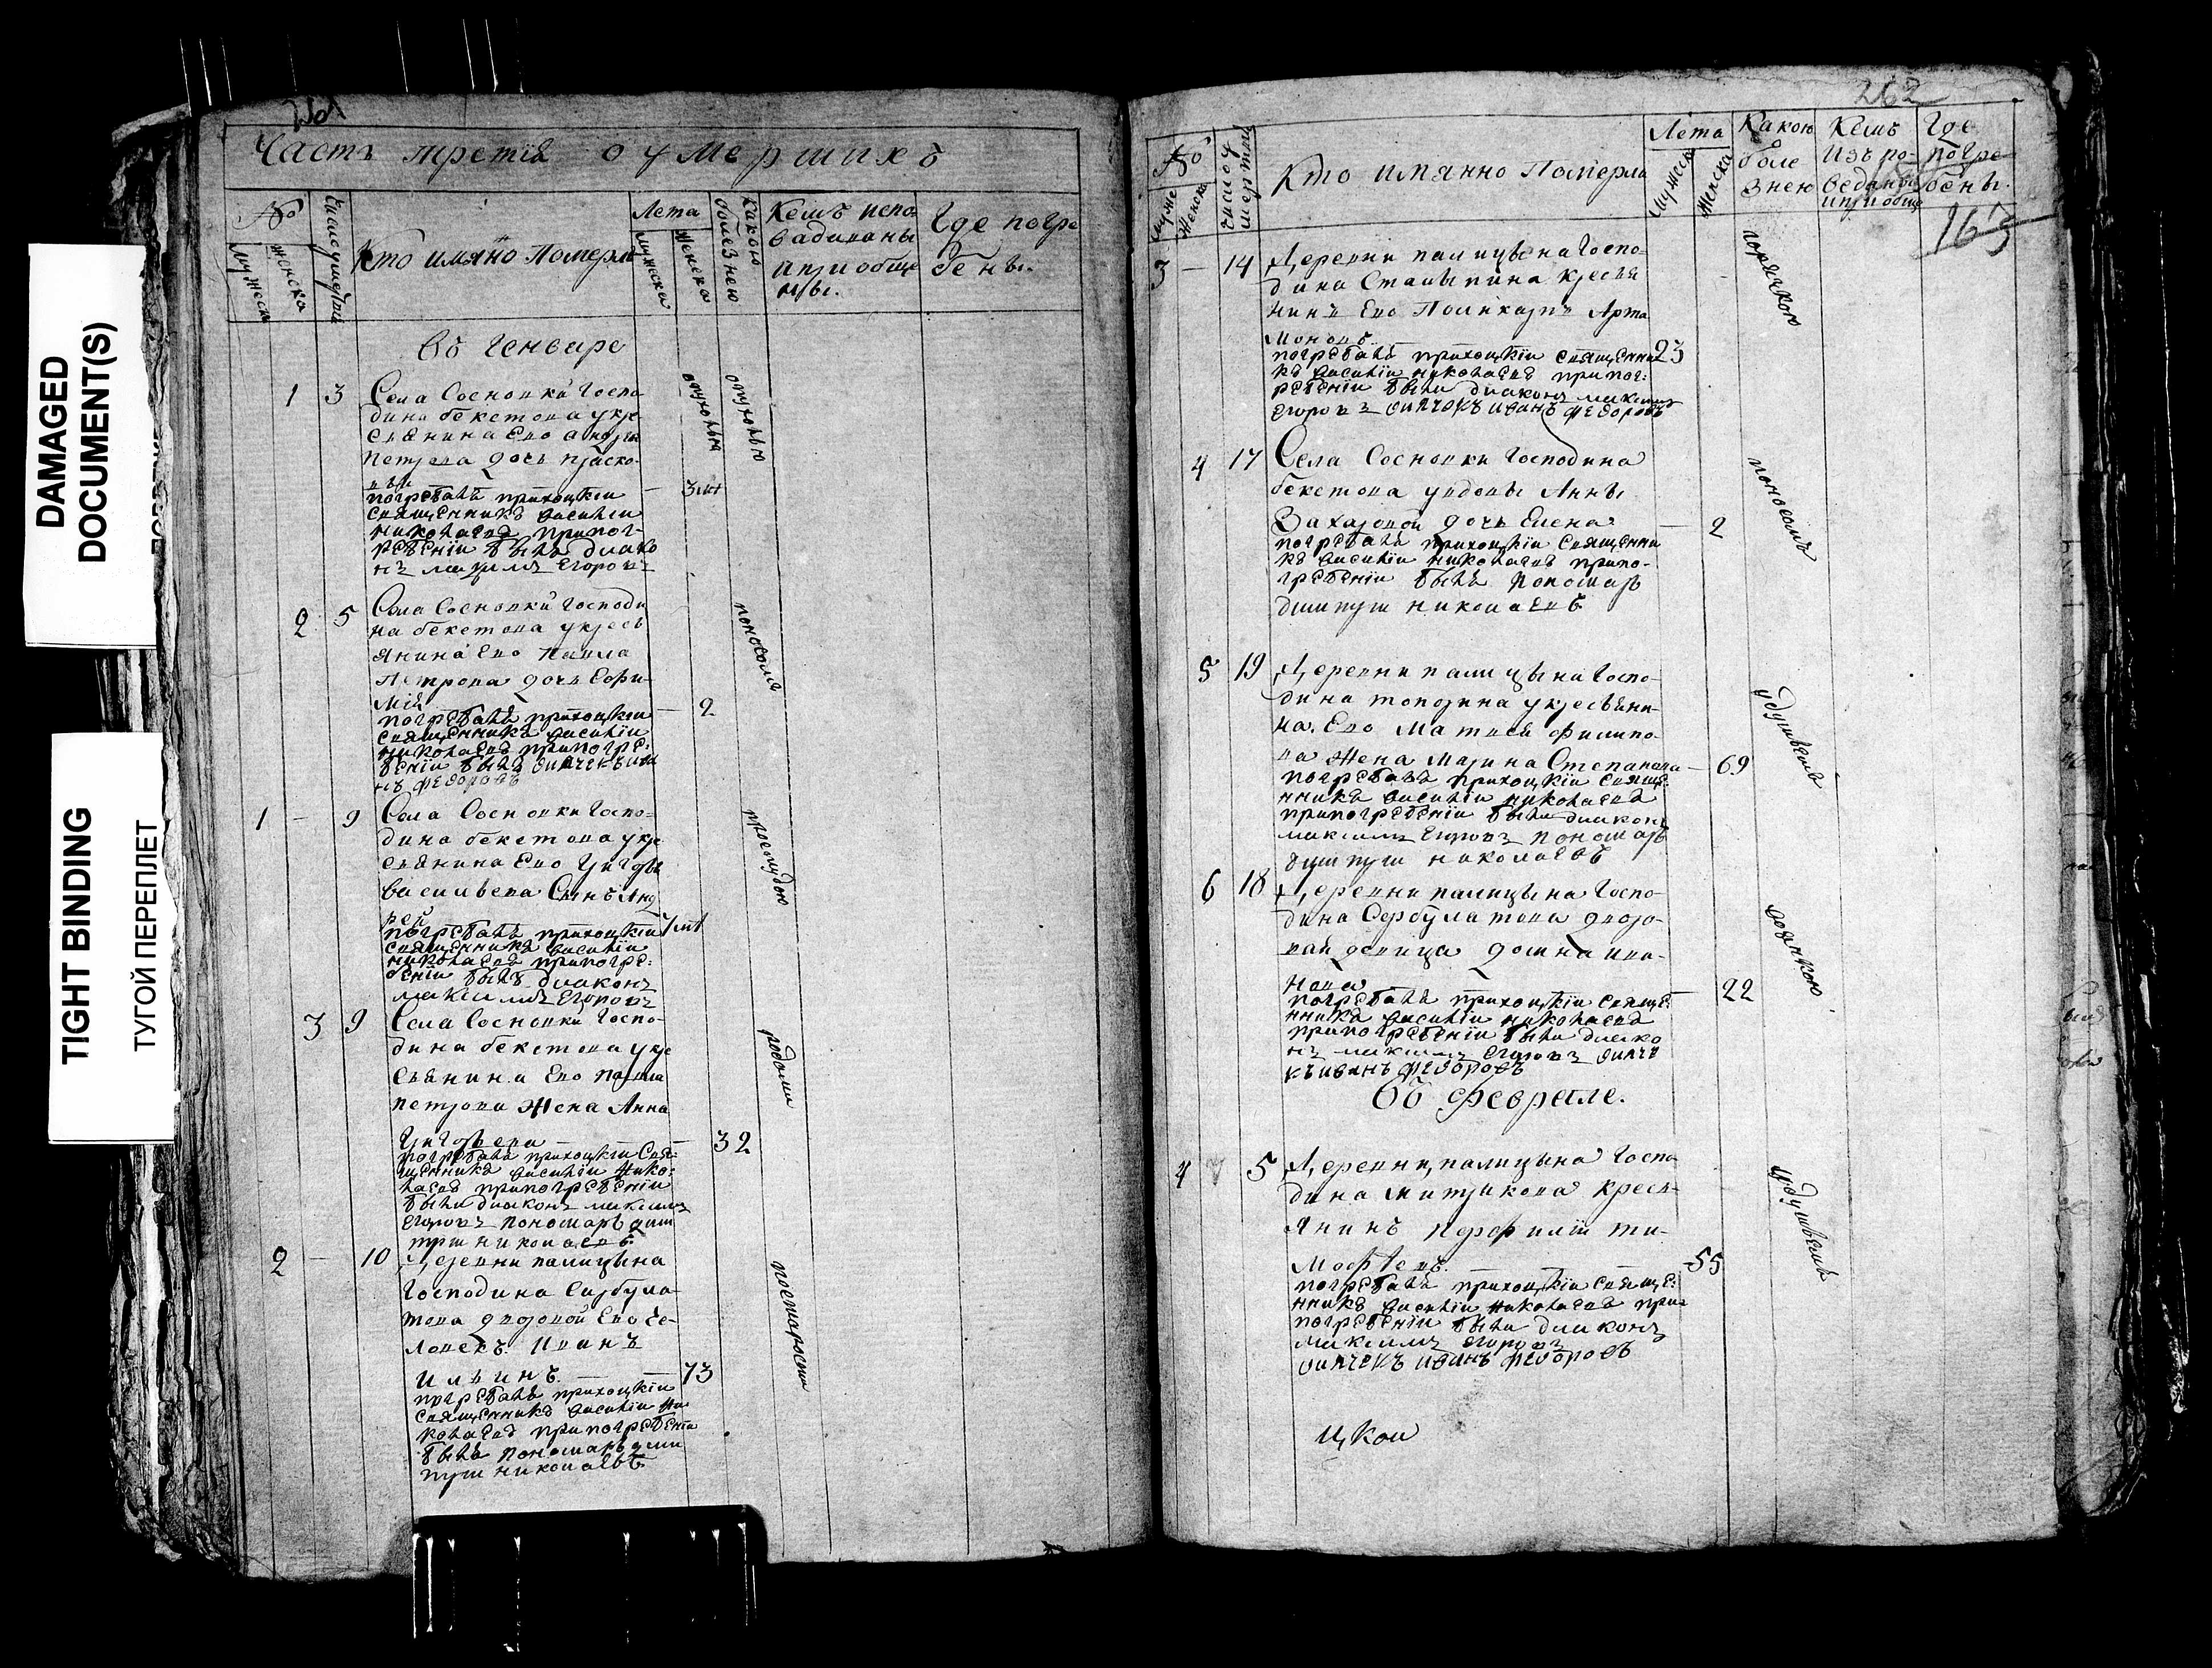 DAMAGED
DOCUMENT(S)
TIGHT BINDING
ТУГОЙ ПЕРЕПЛЕТ
261
Часть третія о умершихъ
№
мужеск
женска
Число умертвій
Кто имяно Померли
Лета
мужеска
женска
Какою
болезнею
Кемъ испо
ведываны
и приобще
ны.
Где погре
бены.
въ Генваре
1 3 Села Сосновки Госпо
дина бекетова у кре
стьянина Ево Андрея
Петрова дочь праско
вья
3 нед
опухолью
опухолью
погребалъ приходскій
священникъ василіи
николаевъ припог-
ребеніи былъ диако
нъ максимъ Егоровъ
2 5 Села Сосновки Господи
на бекетова у кресть
янина Ево Павла
Петрова дочь Еофи-
мія
2
поносомъ
погребалъ приходскіи
священникъ василіи
николаевъ припогре:
беніи былъ дьячекъ ива
нъ федоровъ
1 9 Села Сосновки Госпо-
дина бекетова у кре
стьянина Ево Григорья
васильева Сынъ Анд
рей
простудою
погребалъ приходскіи
священникъ василіи
николаевъ припогре:
беніи былъ диаконъ
максимъ Егоровъ
3 9 Села Сосновки Госпо-
дина бекетова у кре
стьянина Ево павла
петрова жена Анна
Григорьева
32
родами
погребалъ приходскіи Свя-
щенникъ василіи Нико:
лаевъ припогребеніи
были диаконъ максимъ
Егоровъ пономарь дми
трій николаевъ
2 10 Деревни палицына
Господина Сарбула
това дворовой Ево Че-
ловекъ Иванъ
Ильинъ
73
пострости
погребалъ приходскіи
священникъ василіи Ни
колаевъ припогребеніи
былъ пономарь дми
трій николаевъ
262
№
муже
женска
Число у
мертвій
Кто имянно Померли
Лета
мужеск
женска
Какою
боле
знею
Кемъ
Изъ по-
веданы
и приобще
Где
погре
бены.
163
3 14 Деревни палицына Госпо-
дина Столыпина кресть
нинъ Ево Поликарпъ Арта
моновъ
23
горячкою
погребалъ приходскіи священни
къ василіи николаевъ припог:
ребеніи были диаконъ максимъ
Егоровъ дьячекъ иванъ федоровъ
4 17 Села Сосновки Господина
бекетова у вдовы Анны
Захаровой дочь Елена
2
поносомъ
погребалъ приходскіи священни
къ василіи николаевъ припо-
гребеніи былъ Пономарь
дмитрій николаевъ
5 19 Деревни палицына Госпо-
дина топорнина у крестьяни-
на. Ево Матвея филипо-
ва жена Марина Степанова
69
удушьемъ
погребалъ приходскіи священ
нникъ василіи николаевъ
припогребеніи были диаконъ
максимъ Егоровъ пономарь
дмитрій николаевъ
6 18 Деревни палицына Госпо-
дина Сербулатова дворо-
вая девица домна ива-
нова
22
водянкою
погребалъ приходскіи священ
нникъ василіи николаевъ
припогребеніи были диако
нъ максимъ Егоровъ дьяче
къ иванъ федоровъ
въ феврале.
4 5 Деревни палицына Госпо
дина митрикова кресть-
янинъ Перфилій ти-
мофѣевъ
55
удушьемъ
погребалъ приходскіи священ
нникъ василіи николаевъ при
погребеніи были диаконъ
максимъ Егоровъ
дьячекъ иванъ федоровъ
цкои